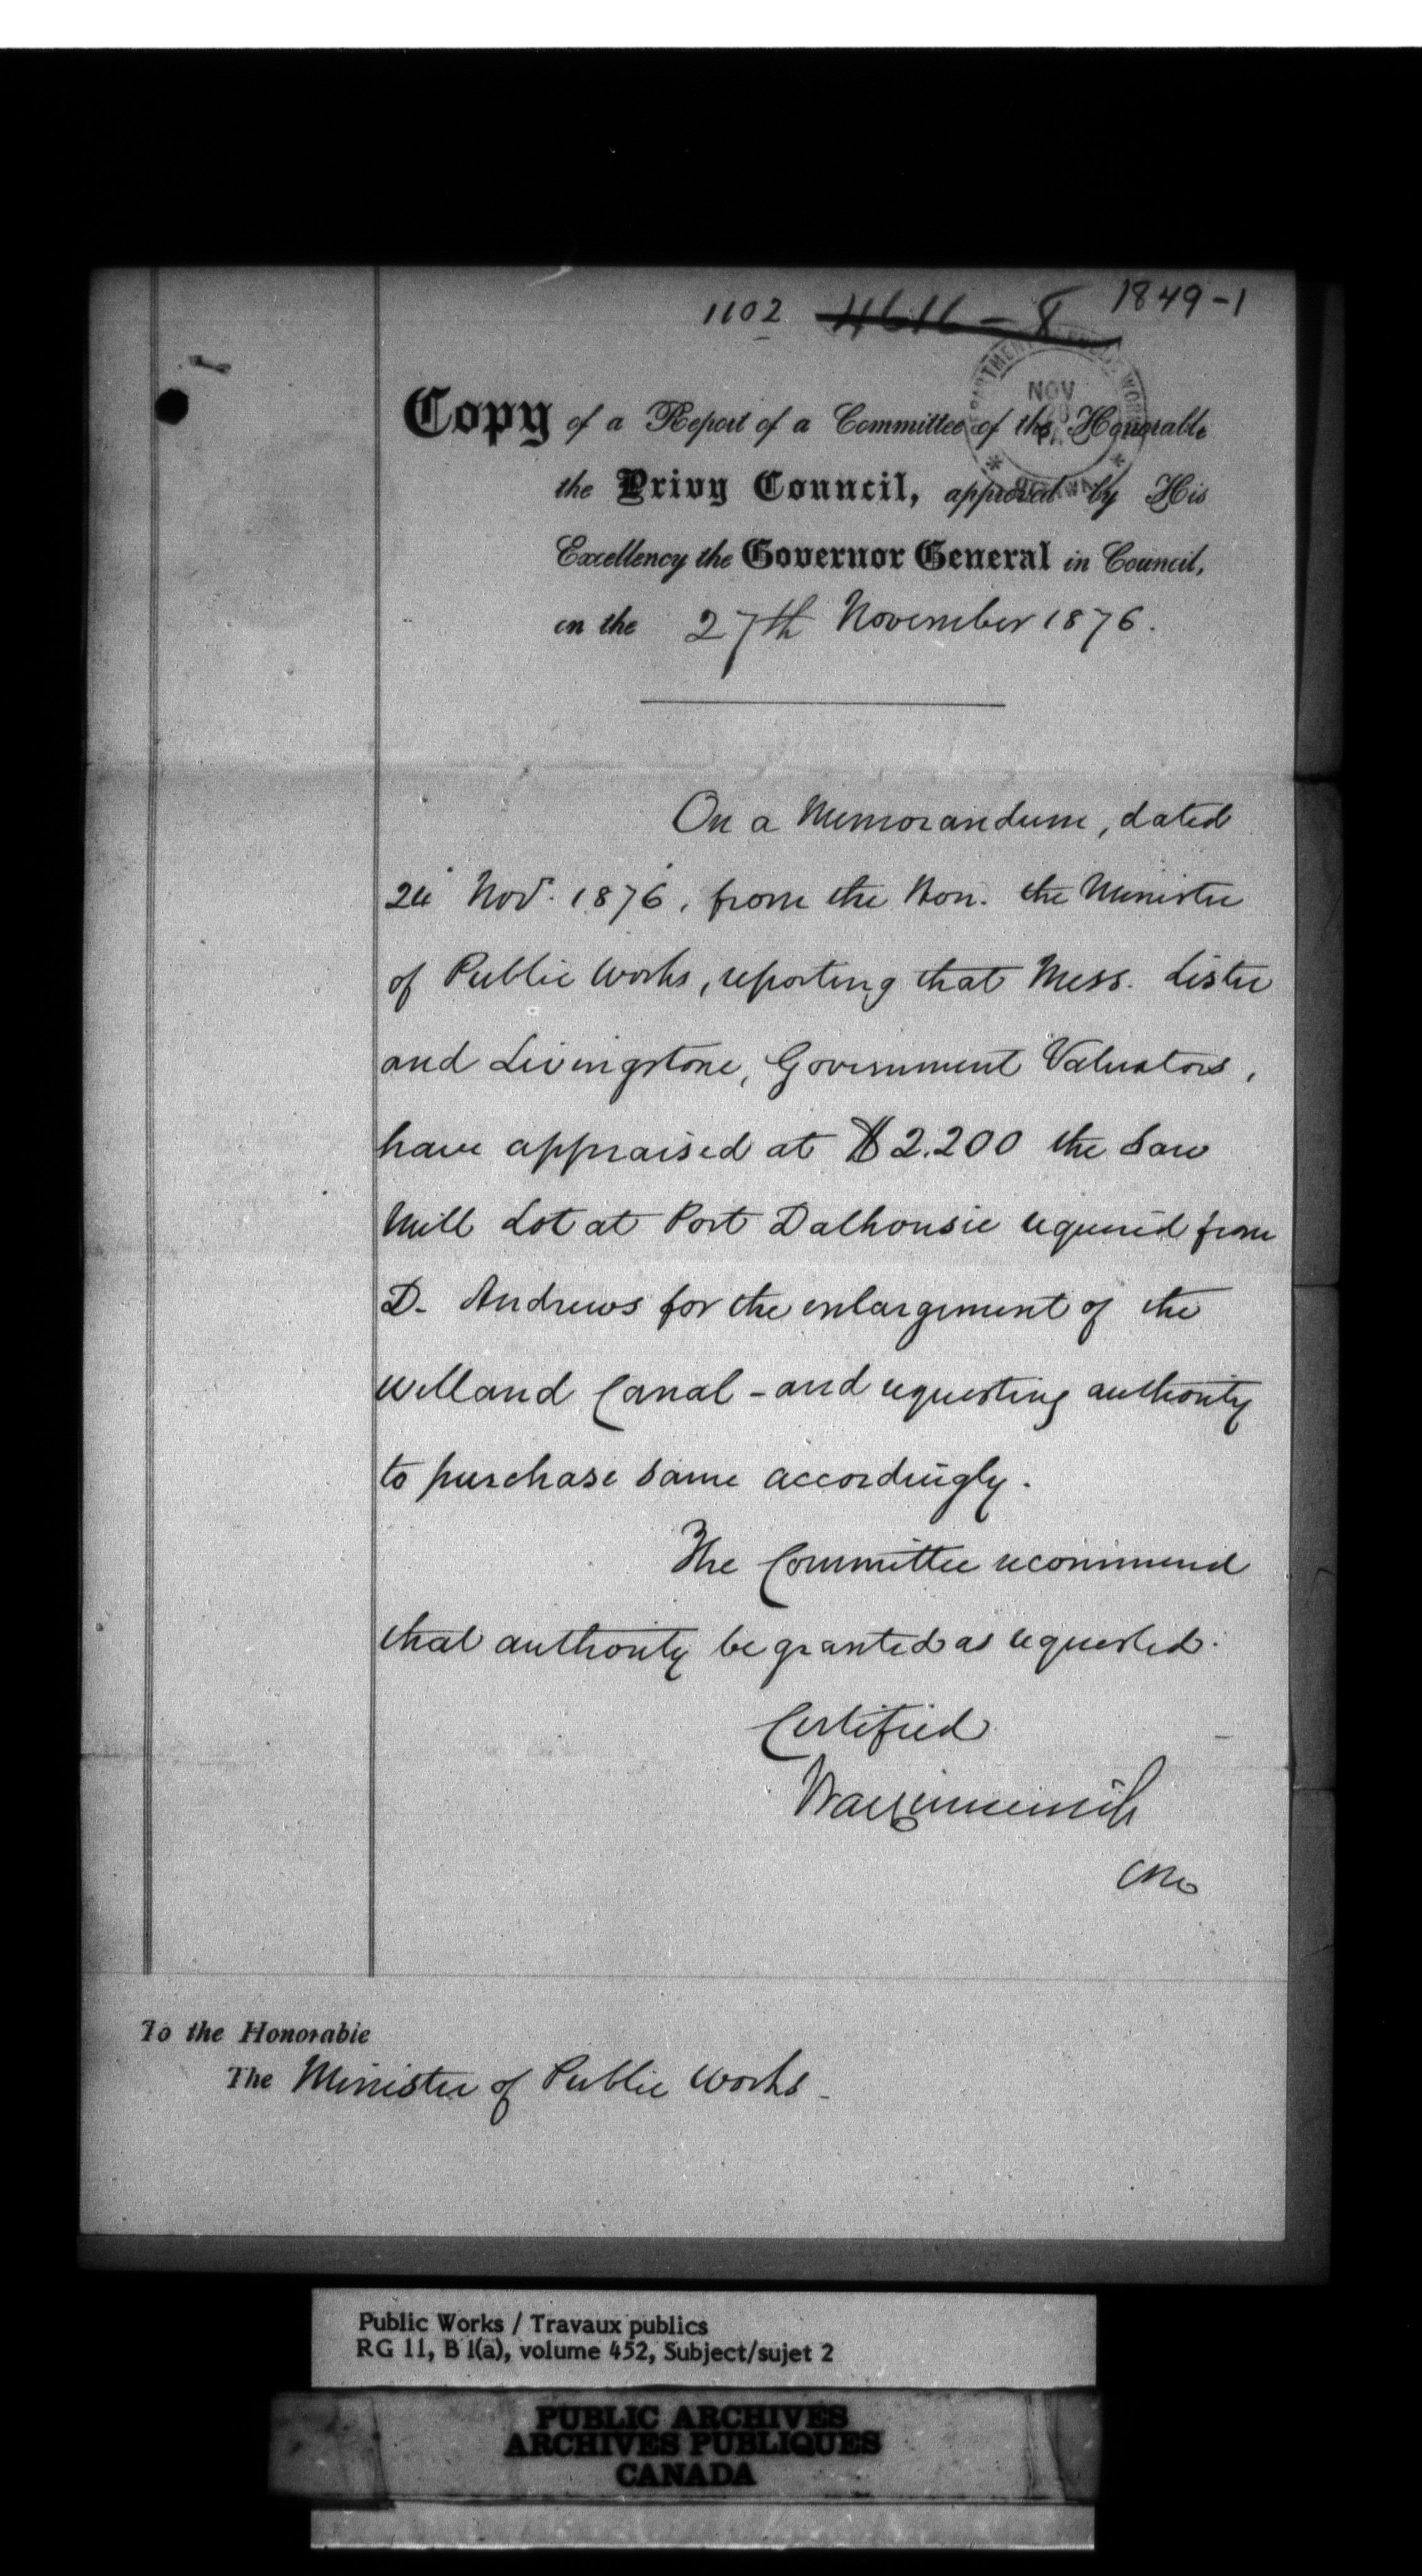 1102 4616-8 1849-1
NOV
Copy of a Report of a Committee of the Honorable
the Privy Council, approved by His
Excellency the Governor General in Council,
on the 27th November 1876.
On a Memorandum, dated
24 Nov. 1876, from the Hon. the Minister
of Public Works, reporting that Mess. Lister
and Livingstone, Government Valuators,
have appraised at $2.200 the Saw
Mill Lot at Port Dalhousie required from
D. Andrews for the enlargement of the
Welland Canal - and requesting authority
to purchase same accordingly.
The Committee recommend
that authority be granted as requested.
Certified
To the Honorable
The Minister of Public Works
Public Works / Travaux publics
RG 11, B 1(a), volume 452, Subject/sujet 2
PUBLIC ARCHIVES
ARCHIVES PUBLIQUES
CANADA